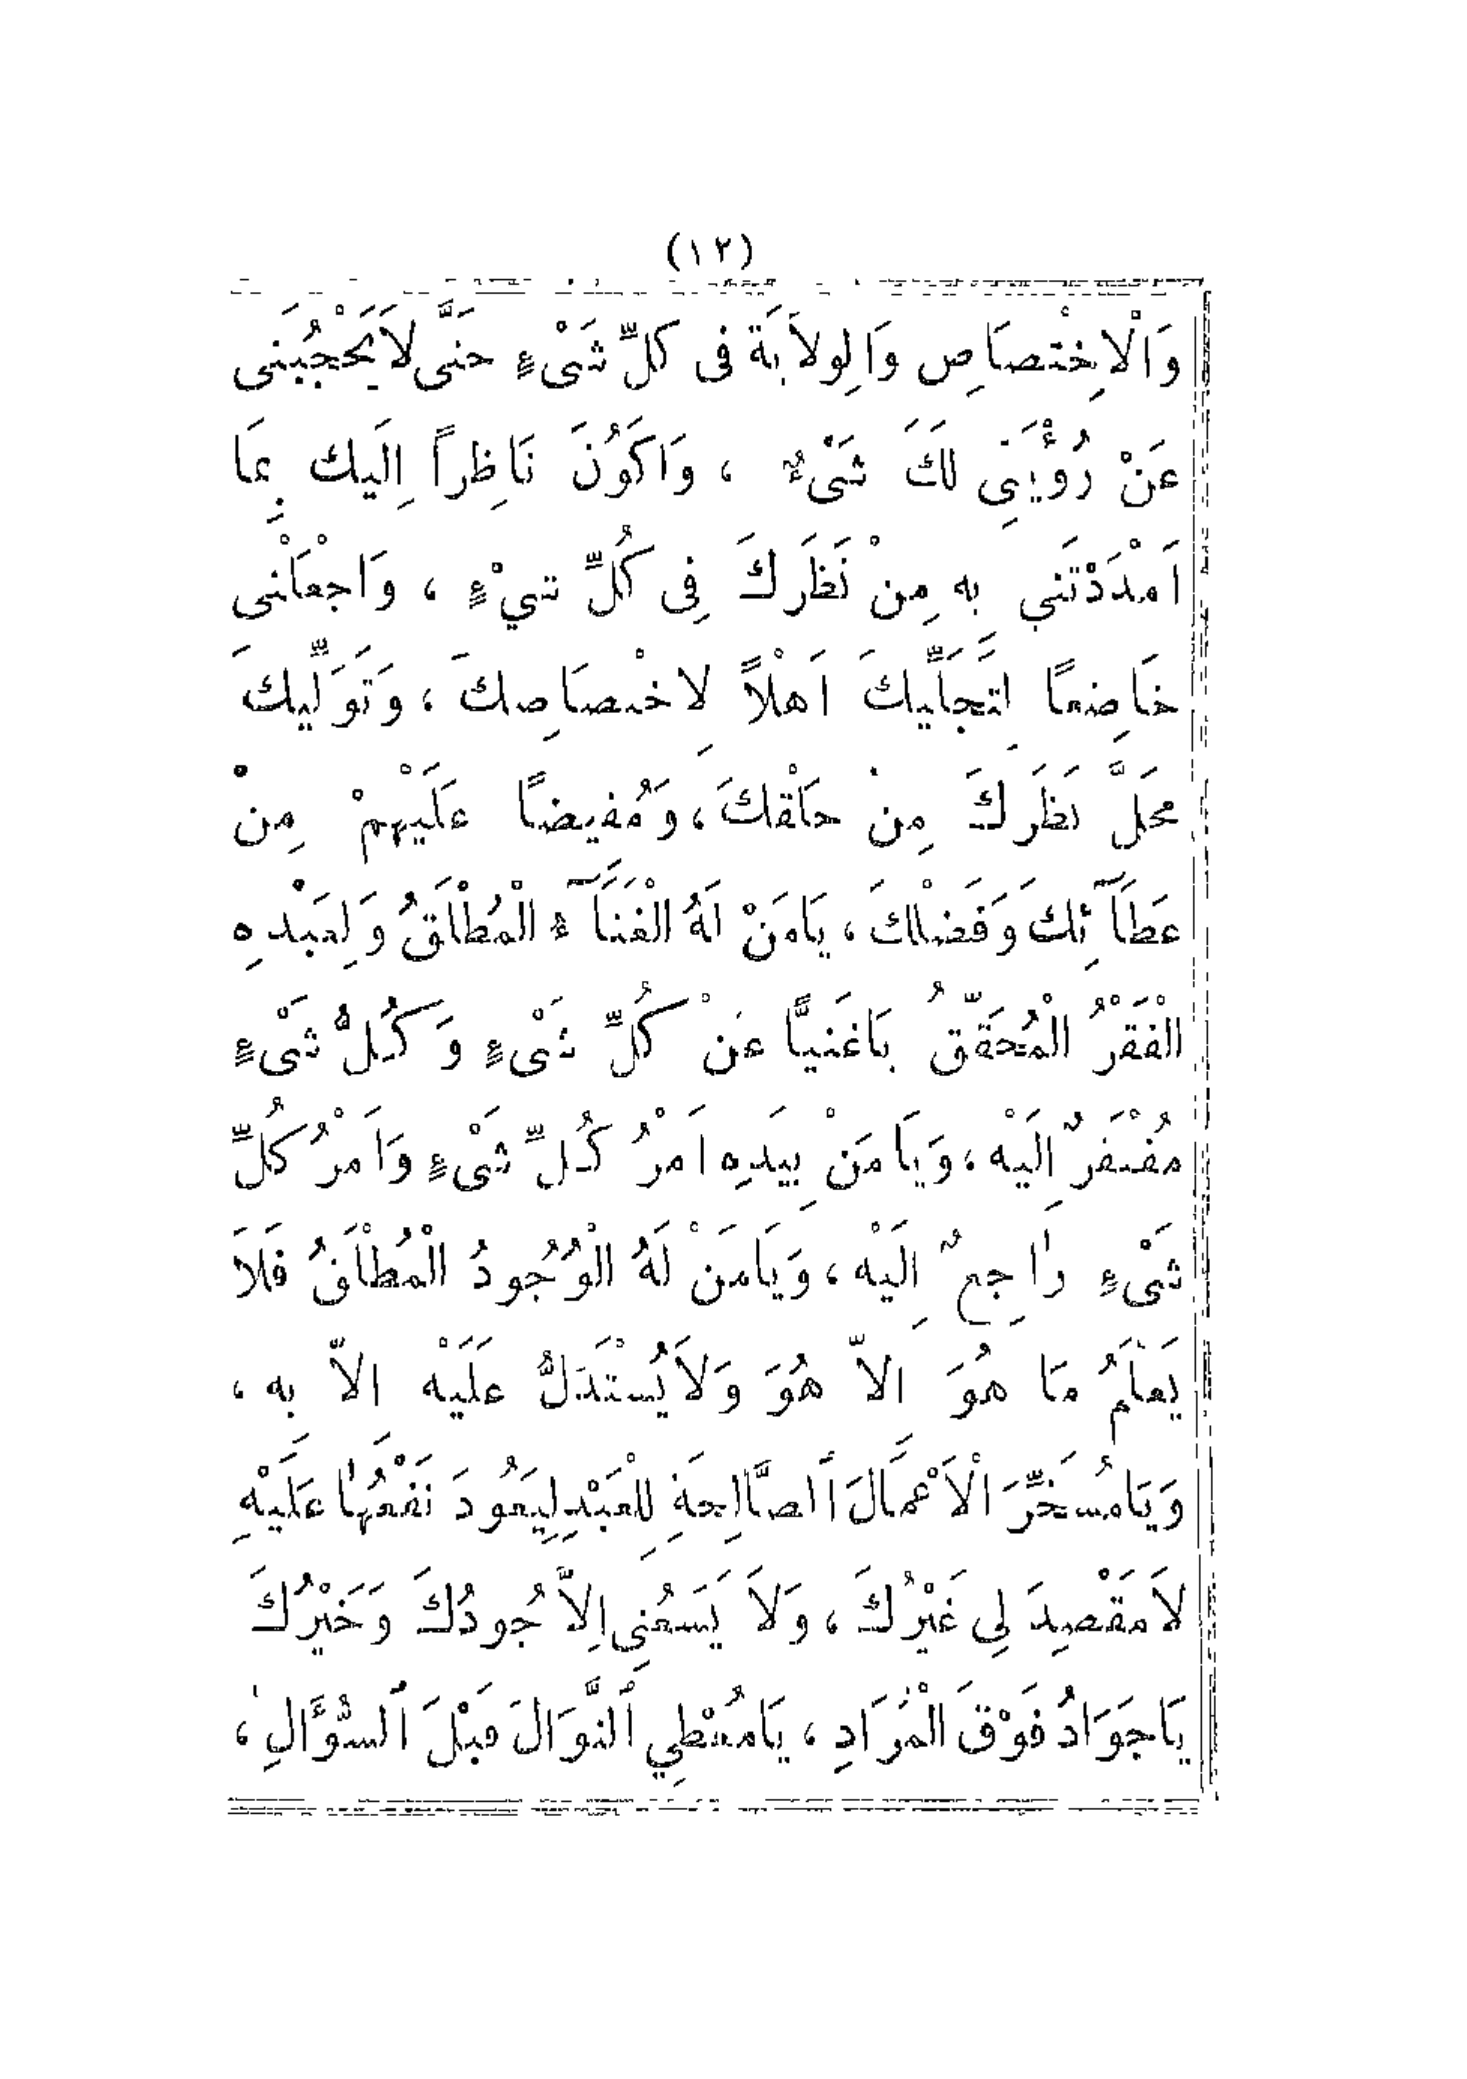 (١٢)
وَالْاِخْتصَاصِ وَالوِلاَيَة فى كلِّ شَىْءٍ حَتَّى لاَيَحْجُبَنى
عَنْ رُؤْيَتِى لكَ شَىْءٌ ، وَاَكُونَ نَاظِراً اِلَيك بِمَا
اَمْدَدْتَنى به مِنْ نَظَرِكَ فِى كُلِّ شيْءٍ ، وَاجْعَلْنى
خَاضِعًا لِتَجَلِّيكَ اَهْلاً لِاخْتصَاصِكَ ، وَتَوَلِّيكَ
محَلَّ نَظَرِكَ مِنْ خَلْقكَ ، وَمُفيضًا عَلَيْهِمْ مِنْ
عَطَآئِكَ وَفَضْلكَ ، يَامَنْ لَهُ الْغَنَآءُ الْمُطْلَقُ وَلِعَبْدِه
الْفَقْرُ الْمُحَقَّقُ يَاغَنيًّا عَنْ كُلِّ شَىْءٍ وَكُلُّ شَىْءٍ
مُفْتَقرٌ اِلَيْه ، وَيَا مَنْ بِيَدِه اَمْرُ كُلِّ شَىْءٍ وَاَمْرُ كُلِّ
شَىْءٍ رٰاجِعٌ اِلَيْه ، وَيَامَنْ لَهُ الْوُجُودُ الْمُطْلَقُ فَلاَ
يَعْلَمُ مَا هُوَ الاّ هُوَ وَلاَيُسْتَدَلُّ عَلَيْه الاّ بِه ،
وَيَامُسَخِّرَ الْاَعْمَالَ الصَّالِحَةِ لِلْعَبْدِ لِيَعُودَ نَفْعُهٰا عَلَيْهِ
لاَمَقْصِدَ لِى غَيْرُكَ ، وَلاَ يَسَعُنِى اِلاَّ جُودُكَ وَخَيْرُكَ
يَاجَوَادُ فَوْقَ الْمُرَادِ ، يَامُعْطِي اَلنَّوَالَ قَبْلَ اَلسُّؤَالِ ،